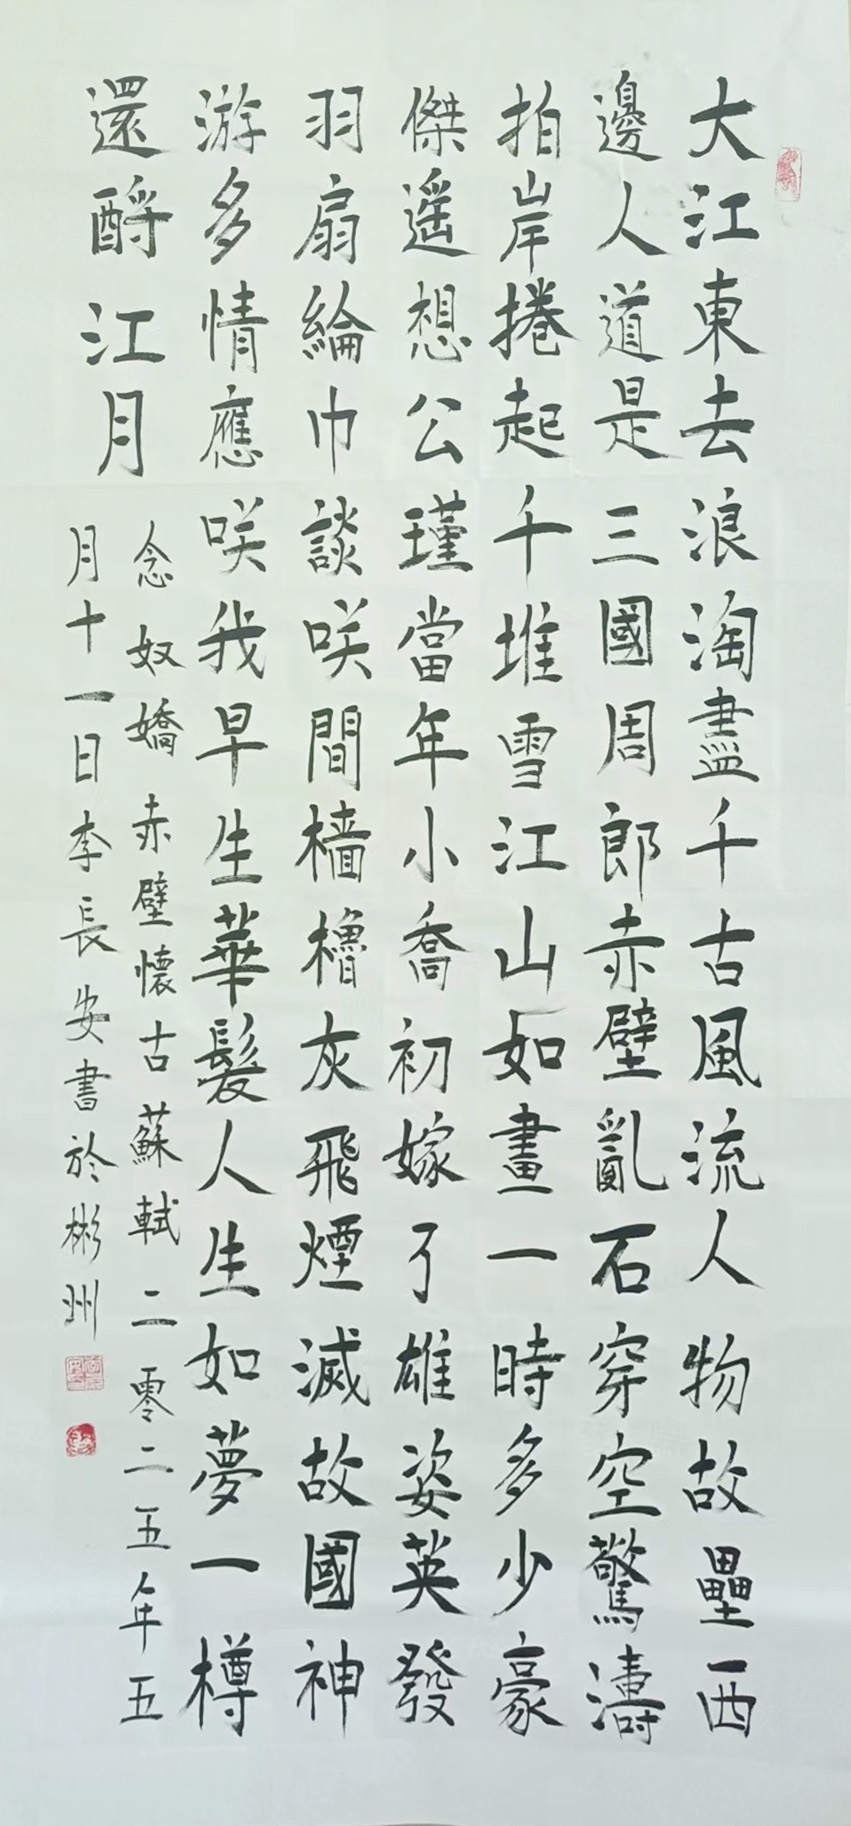 大江東去浪淘盡千古風流人物故壘西
邊人道是三國周郎赤壁亂石穿空驚濤
拍岸捲起千堆雪江山如畫一時多少豪
傑遥想公瑾當年小喬初嫁了雄姿英發
羽扇綸巾談咲間檣櫓灰飛煙滅故國神
游多情應咲我早生華髮人生如夢一樽
還酹江月
念奴嬌赤壁懷古蘇軾二零二五年五
月十一日李長安書於彬州